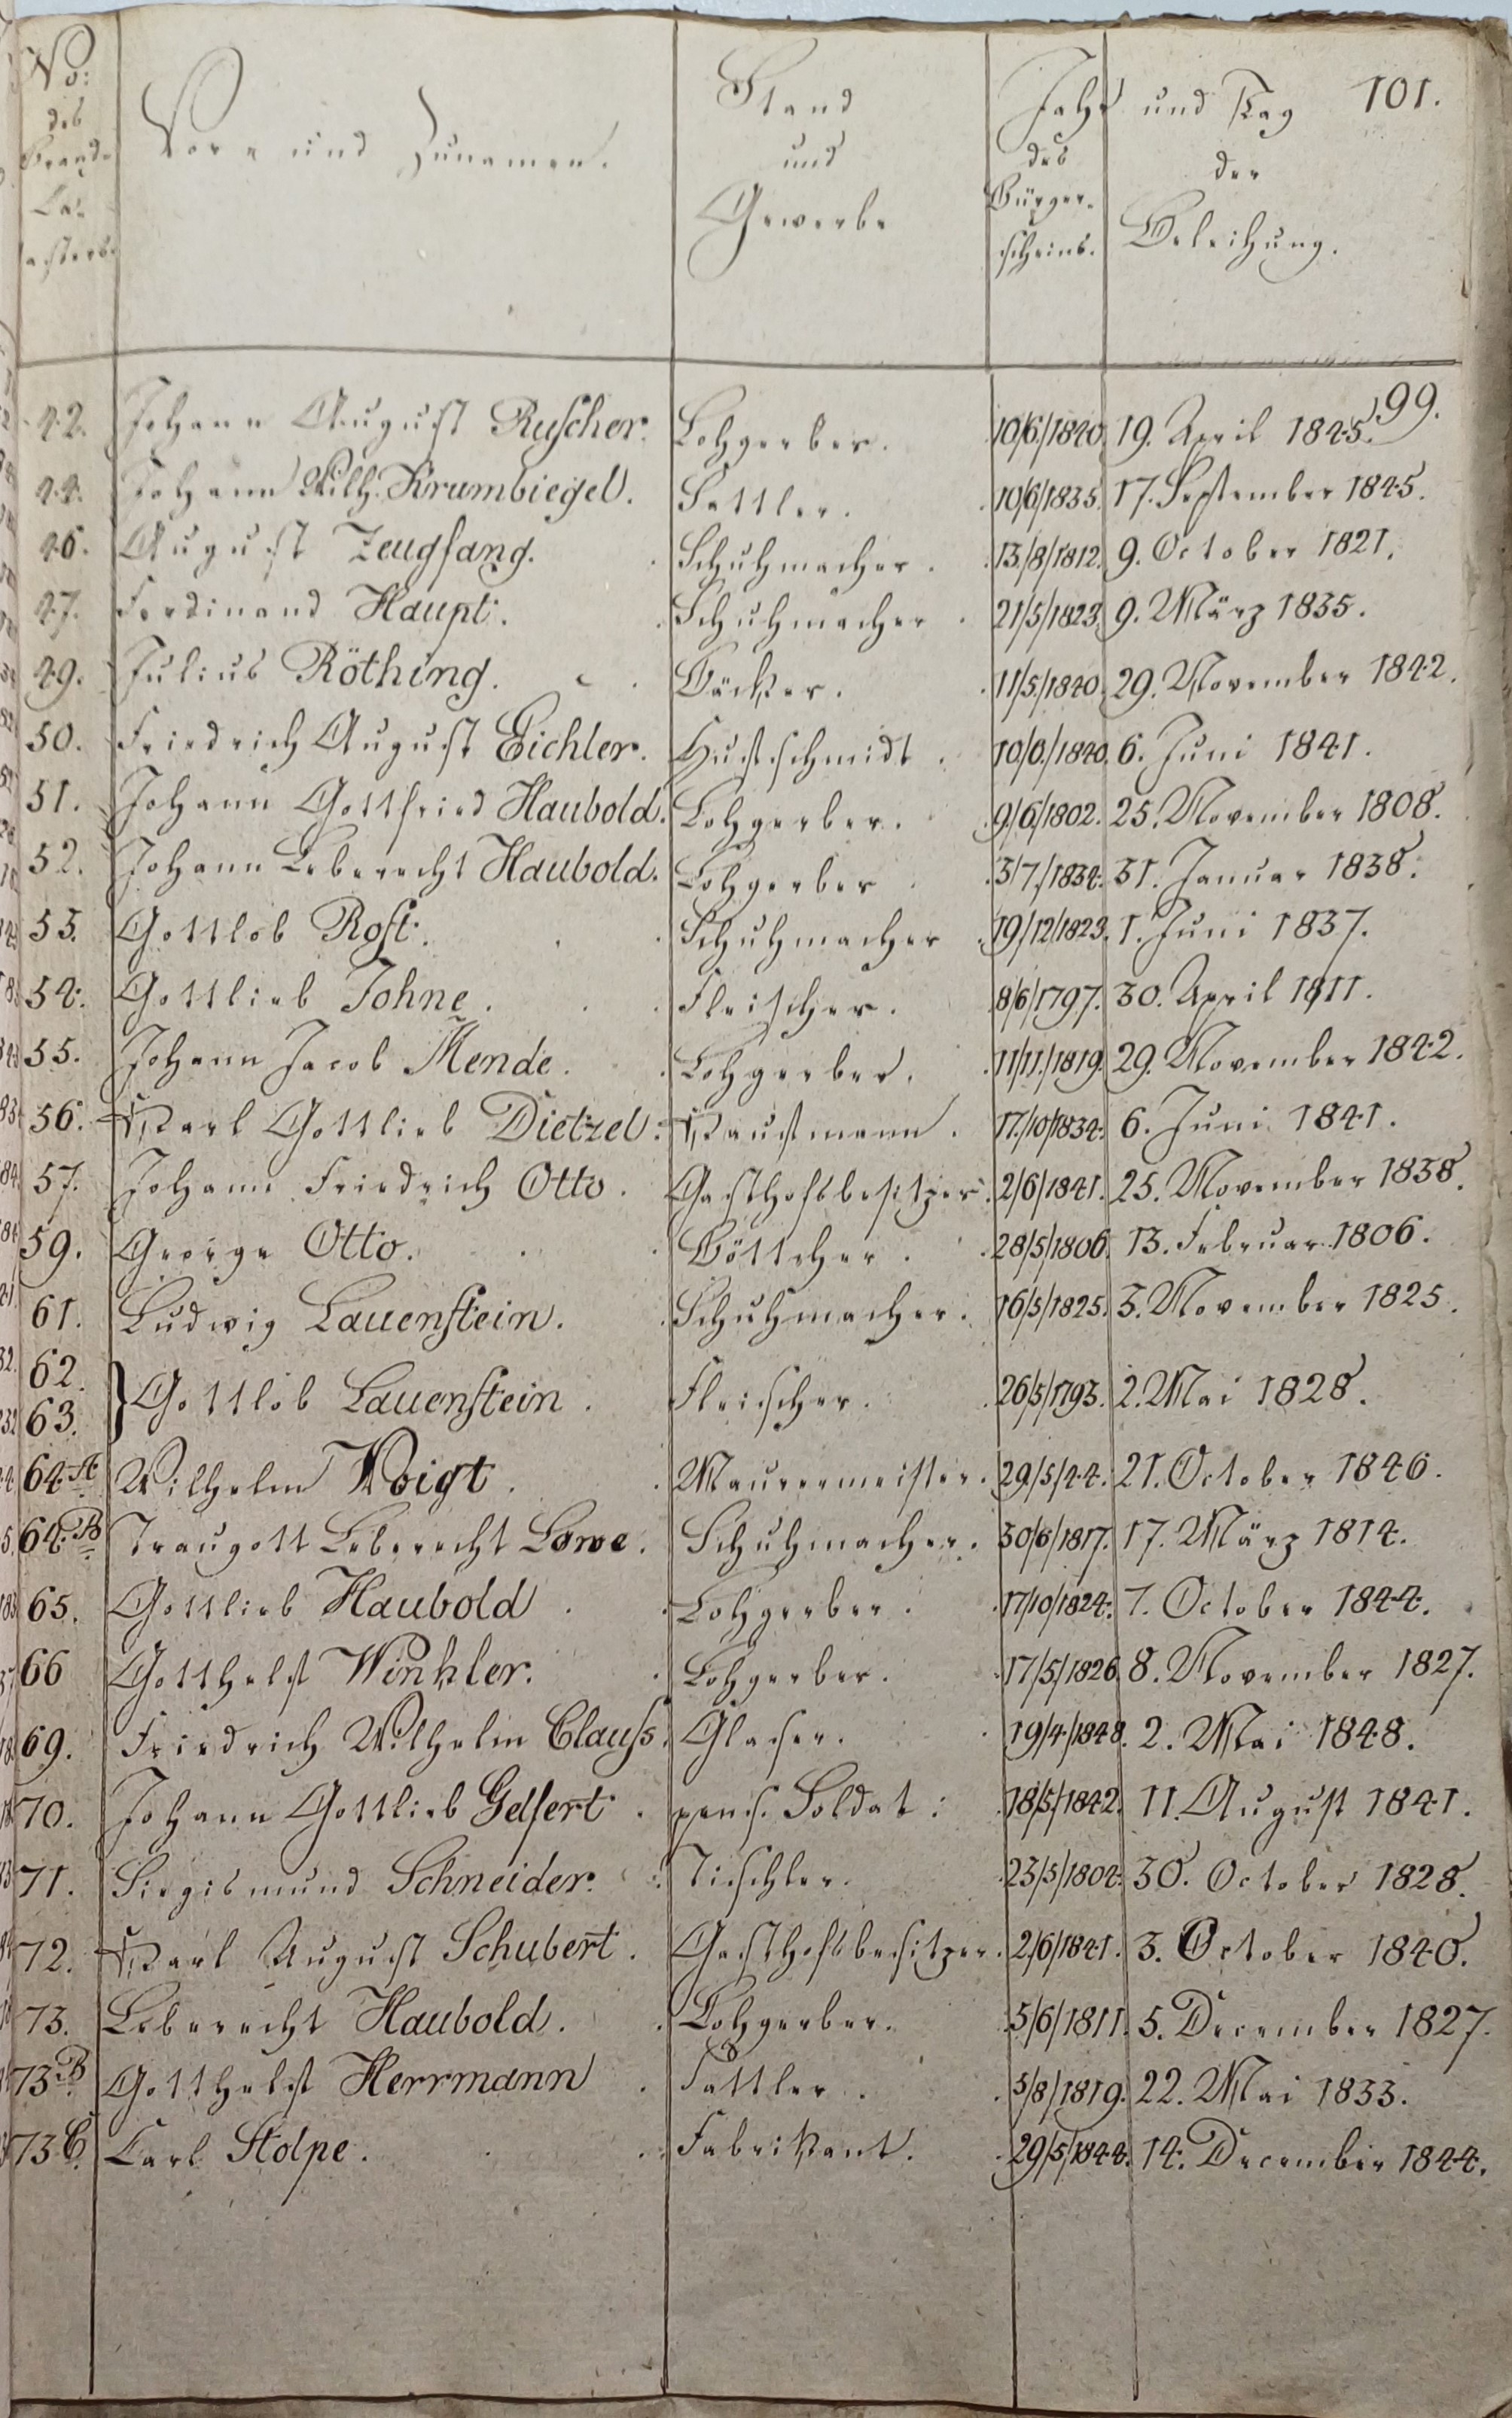 No: des Brand- Ca- tasters. Vor- und Zunamen. Stand und Gewerbe Jahr des Bürger- scheins. und Tag der Beleihung. 101.
99.
42. Johann August Ruscher. Lohgerber. 10/6/1840. 19. April 1845.
44. Johann Wilh. Krumbiegel. Sattler. 10/6/1835. 17. September 1845.
46. August Zeugfang. Schuhmacher. 13/8/1812. 9. October 1821.
47. Ferdinand Haupt. Schuhmacher. 21/5/1823. 9. März 1835.
49. Julius Röthing. Bäcker. 11/5/1840. 29. November 1842.
50. Friedrich August Eichler. Hufschmidt. 10/6/1840. 6. Juni 1841.
51. Johann Gottfried Haubold. Lohgerber. 9/6/1802. 25. November 1808.
52. Johann Leberecht Haubold. Lohgerber. 3/7/1834. 31. Januar 1838.
53. Gottlob Rost. Schuhmacher 19/12/1823. 1. Juni 1837.
54. Gottlieb Johne. Fleischer. 8/6/1797. 30. April 1811.
55. Johann Jacob Mende. Lohgerber. 11/11/1819. 29. November 1842.
56. Karl Gottlieb Dietzel. Kaufmann. 17/10/1834. 6. Juni 1841.
57. Johann Friedrich Otto. Gasthofsbesitzer. 2/6/1841. 25. November 1838.
59. George Otto. Böttcher. 28/5/1806. 13. Februar 1806.
61. Ludwig Lauenstein. Schuhmacher. 16/5/1825. 3. November 1825.
62.
63. } Gottlob Lauenstein. Fleischer. 26/5/1793. 2. Mai 1828.
64.A Wilhelm Voigt. Maurermeister. 29/5/44. 21. October 1846.
64.B Traugott Leberecht Löwe. Schuhmacher. 30/6/1817. 17. März 1814.
65. Gottlieb Haubold. Lohgerber. 17/10/1824. 7. October 1844.
66 Gotthelf Winkler. Lohgerber. 17/5/1826. 8. November 1827.
69. Friedrich Wilhelm Clauss. Glaser. 19/4/1848. 2. Mai 1848.
70. Johann Gottlieb Gelfert. pens. Soldat. 18/5/1842. 11. August 1841.
71. Siegismund Schneider. Tischler. 23/5/1804. 30. October 1828.
72. Karl August Schubert. Gasthofsbesitzer. 2/6/1841. 3. October 1840.
73. Leberecht Haubold. Lohgerber. 5/6/1811. 5. December 1827.
73 B Gotthelf Herrmann. Sattler. 5/8/1819. 22. Mai 1833.
73 C. Carl Stolpe. Fabrikant. 29/5/1844. 14. December 1844.